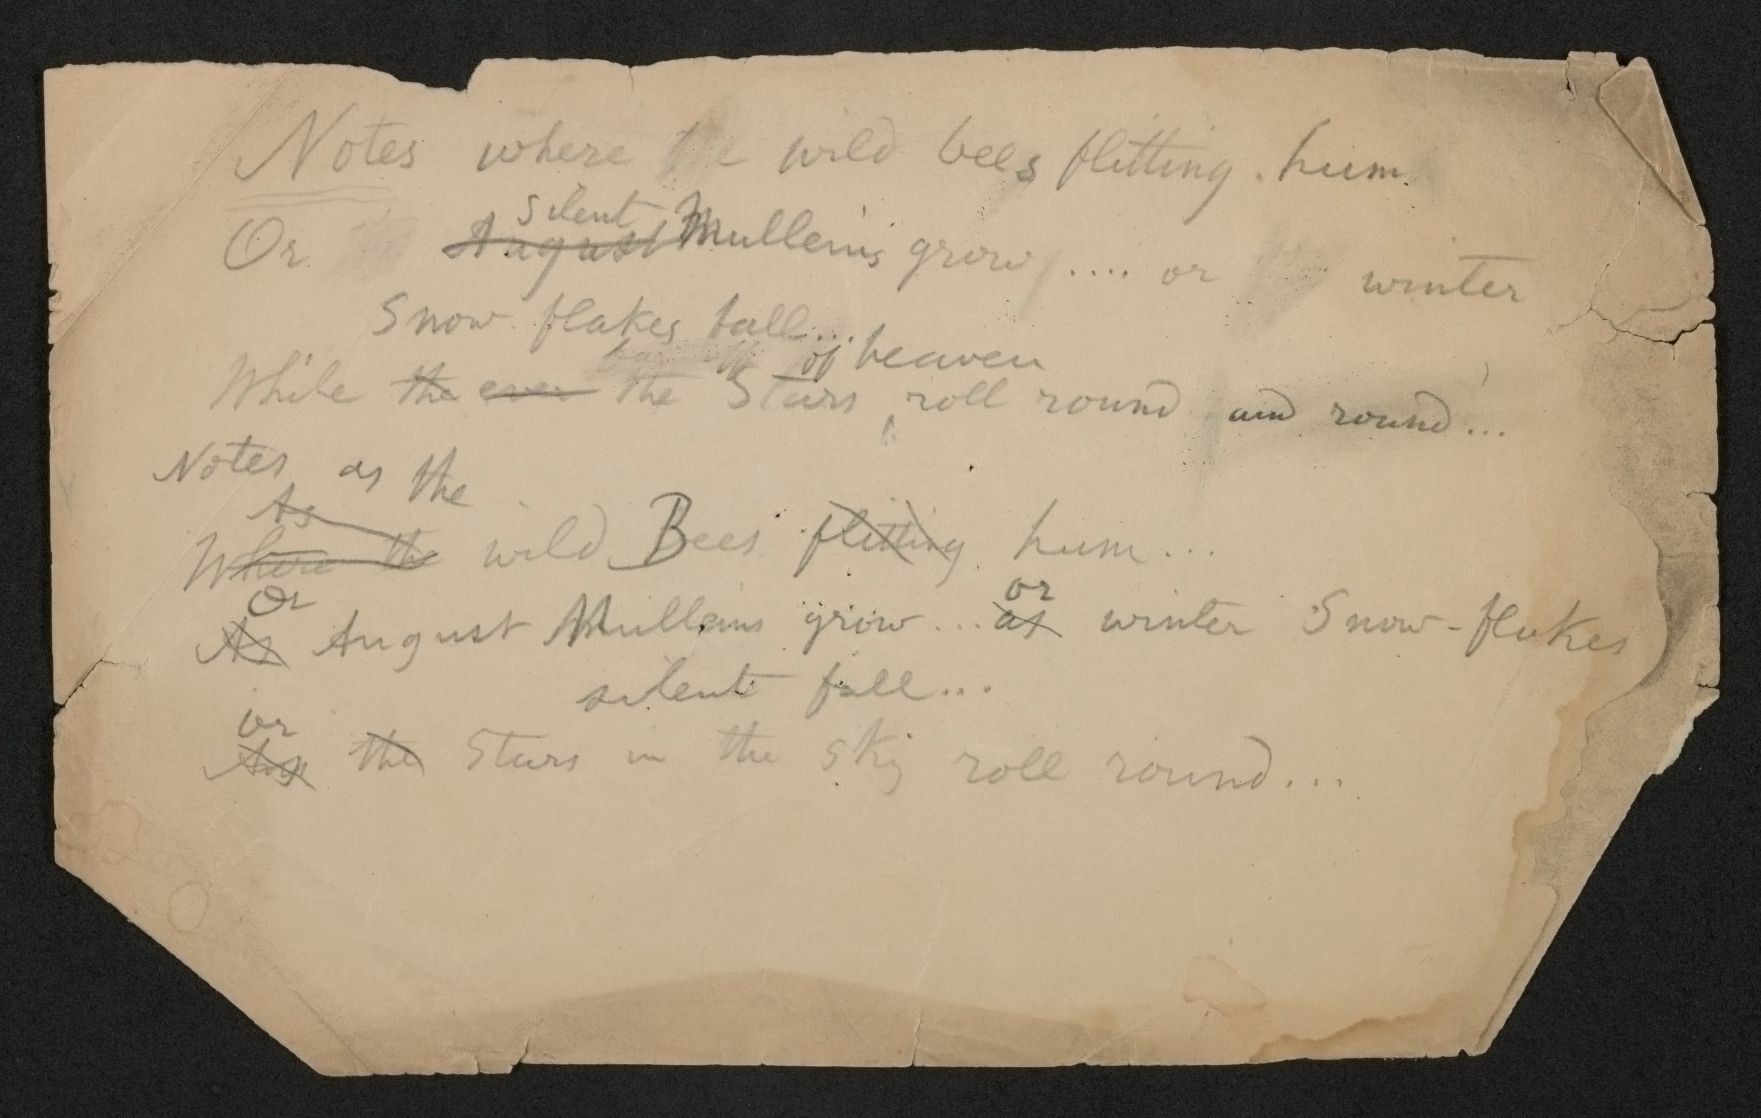 Notes where the wild bees flitting. hum.
silent
Or August Mulleins grow .... or winter
Snow flakes fall...
of heaven
While the ever the Stars roll round and round...
Notes as the
As
Where the wild Bees flitting hum...
Or or
As August Mulleins grow... as winter Snow-flakes
silent fall...
or
As the Stars in the sky roll round...